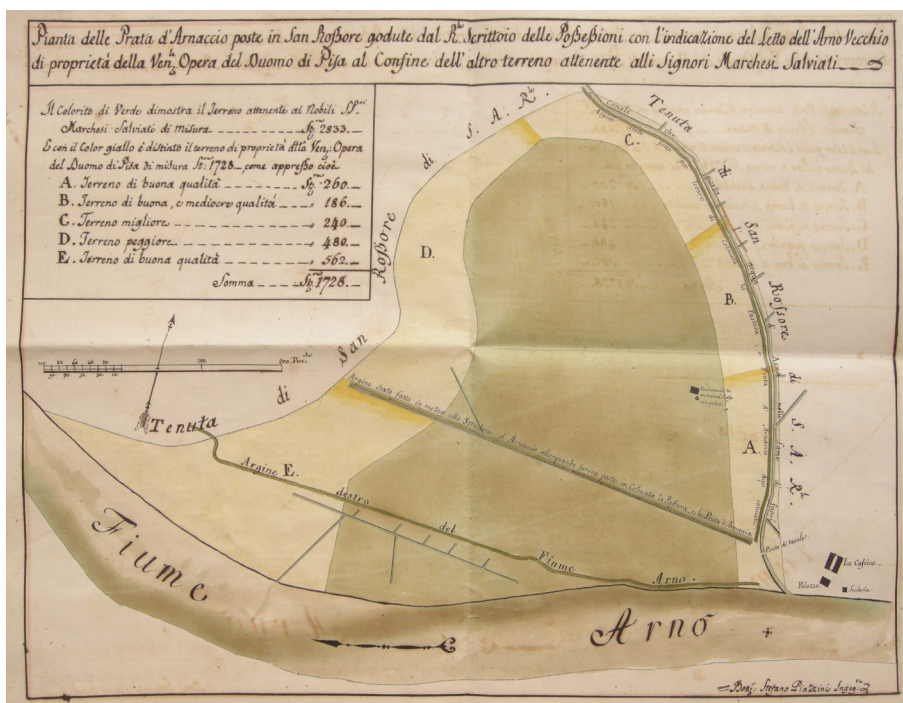 Pianta delle Prata d'Arnaccio poste in San Roßore godute dal R.le Scrittoio delle Poßeßioni con l'indicazione del Letto dell'Arno Vecchio
di proprietà della Ven: Opera del Duomo di Pisa al Confine dell'altro terreno attenente alli Signori Marchesi Salviati
Il Colorito di Verde dimostra il Terreno attenente ai Nobili SS.ri
Marchesi Salviati di misura - - - - - - - - - 2833.
E con il Color giallo è distinto il terreno di proprietà della Ven: Opera
del Duomo di Pisa di misura 1728 come appreßo cioè
A. Terreno di buona qualità - - - - - 260.
B. Terreno di buona, e mediocre qualità - - - 186.
C. Terreno migliore - - - - - - - 240.
D. Terreno peggiore - - - - - - - 480.
E. Terreno di buona qualità - - - - - 562.
Somma - - - 1728.
Tenuta
di
San
Roßore
di
S. A. R.le
Tenuta
di
San
Roßore
di
S. A. R.le
C.
D.
B.
A.
100.
Argine stato fatto in mezzo alla
d'Arnaccio allorquando furono poste in Colmata la Pastura, e le Prata d'Arnaccio
Argine
E.
destro
del
Fiume
Arno
Porta di tavole
Le Cascine.
Palazzo
Scuderia
Fiume
Arno
Stefano Piazzini Ingeg:re